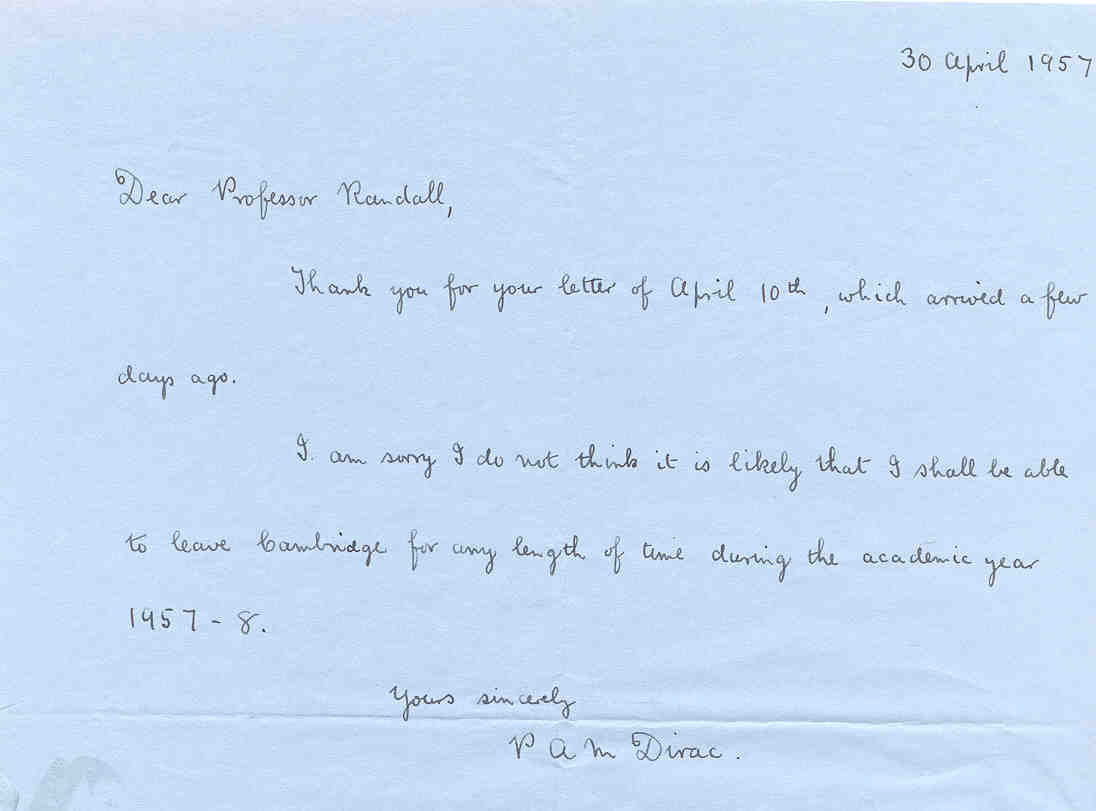 30 April 1957
Dear Professor Randall,
Thank you for your letter of April 10th, which arrived a few
days ago.
I am sorry I do not think it is likely that I shall be able
to leave Cambridge for any length of time during the academic year
1957 - 8.
Yours sincerely
P A M Dirac.